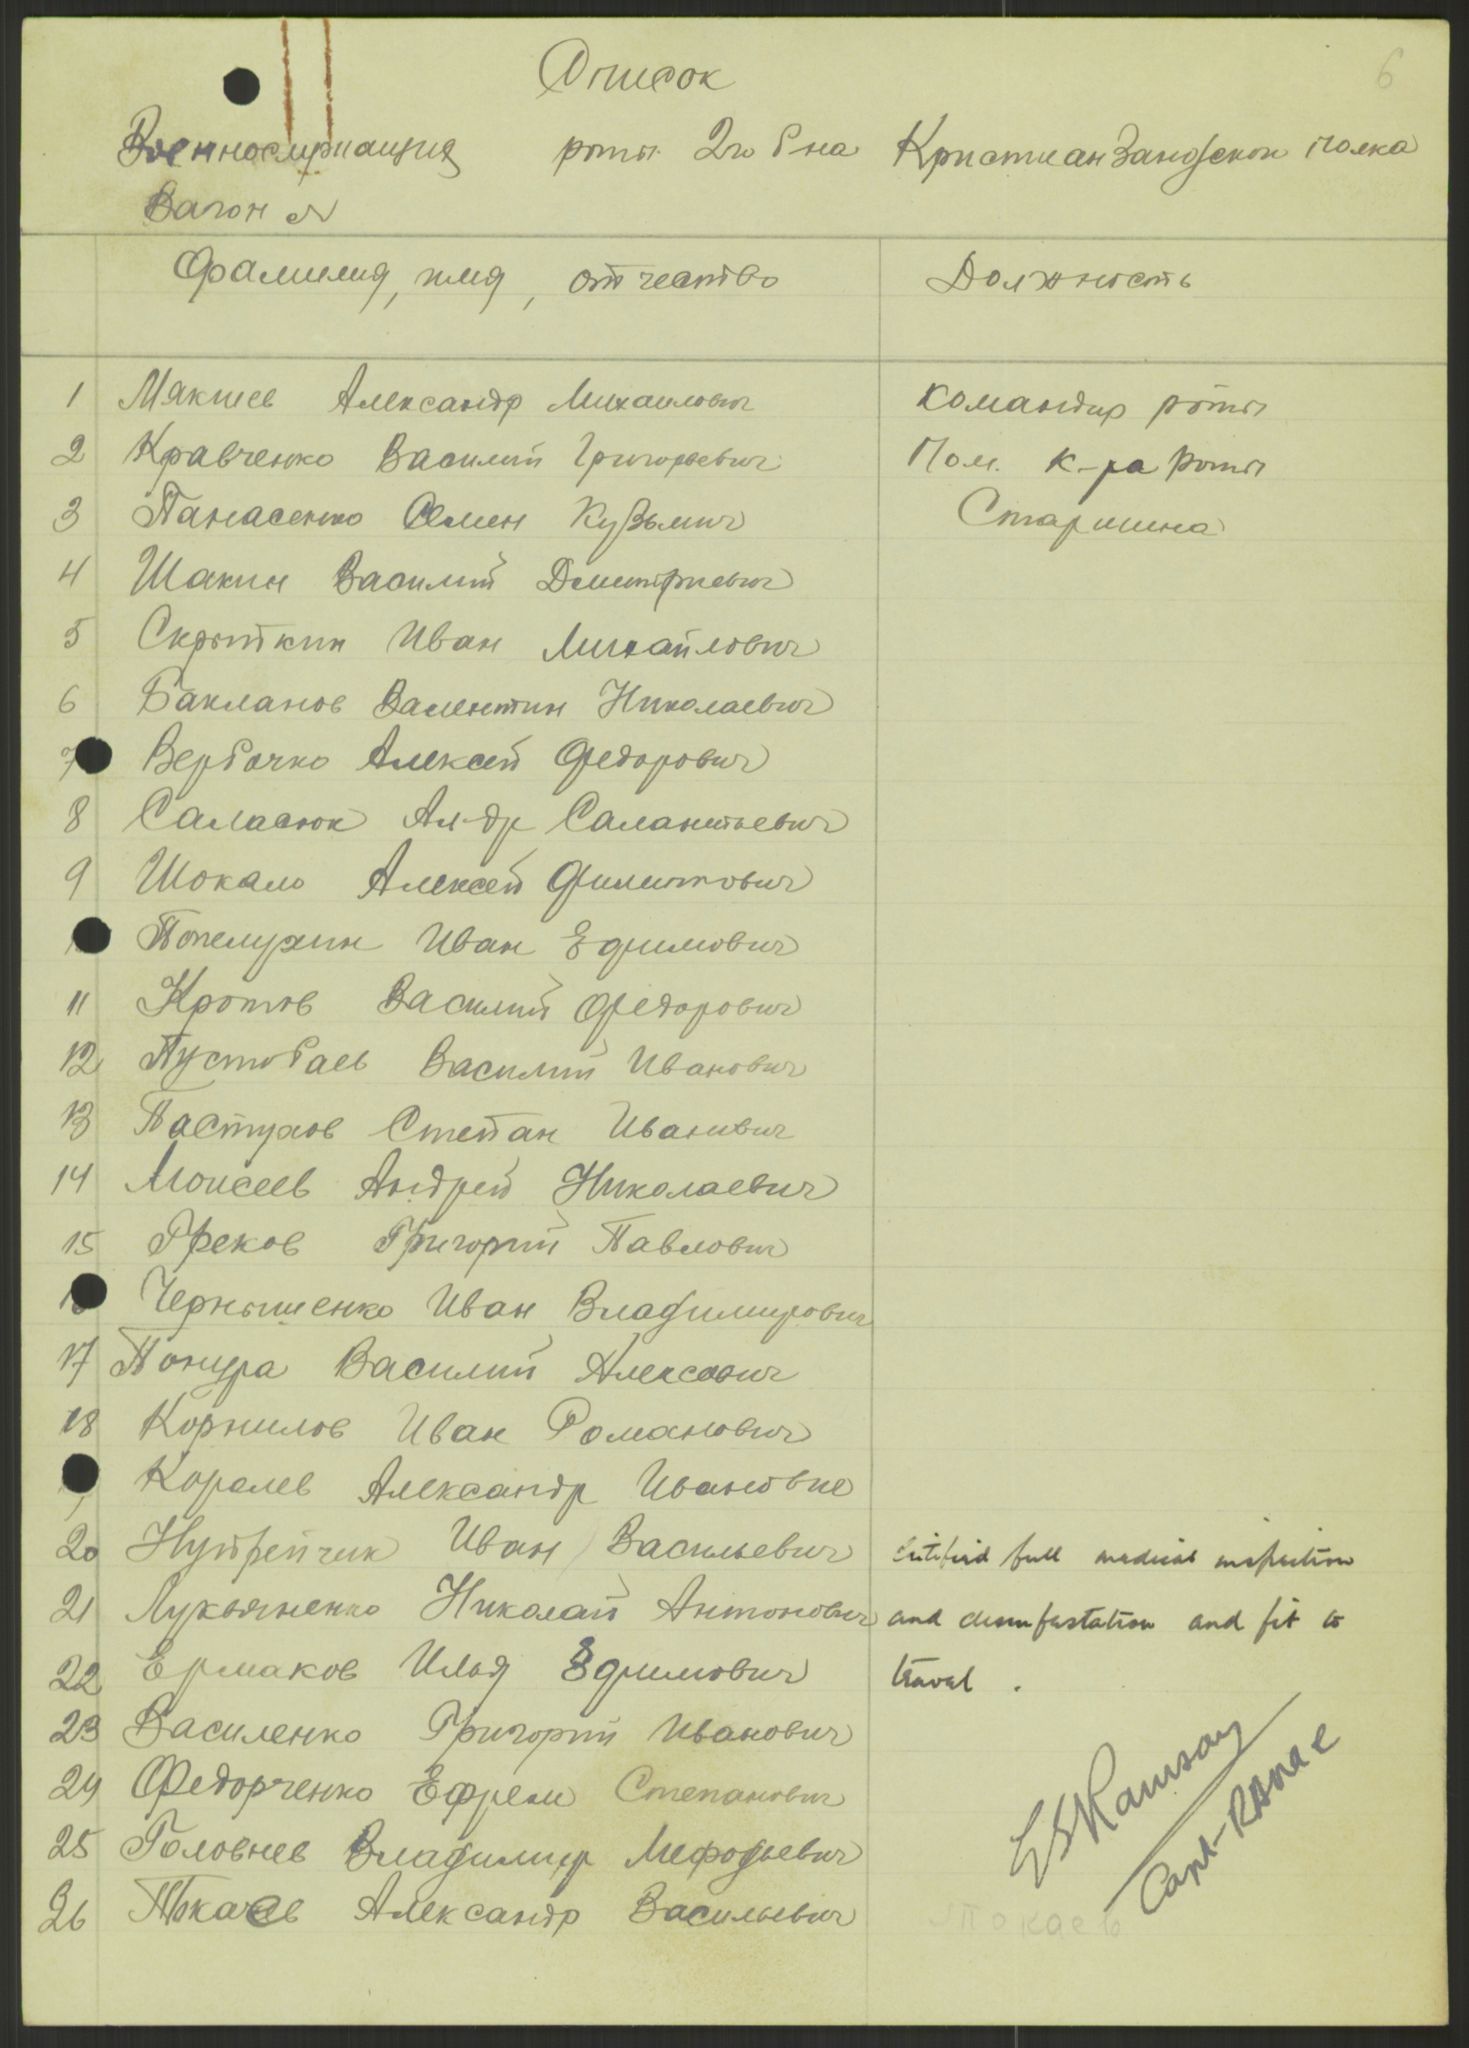 6
Список
Военнослужащия роты 2го б-на Кристианзандской полка
Вагон №
Фамилия, имя, отчество Должность
1 Макшев Александр Михаилович командир роты
2 Кравченко Василий Григорьевич Пом. к-ра роты
3 Панасенко Семен Кузьмич Старшина
4 Шакин Василий Дмитриевич
5 Скрыткин Иван Михайлович
6 Бакланов Валентин Николаевич
7 Вербочко Алексей Федорович
8 Саласюк Ал-др Салантьевич
9 Шокало Алексей Филиппович
Попелухин Иван Ефимович
11 Кротов Василий Федорович
12 Пустобаев Василий Иванович
13 Пастухов Степан Иванович
14 Моисеев Андрей Николаевич
15 Греков Григорий Павлович
16 Чернышенко Иван Владимирович
17 Понура Василий Алексович
18 Корнилов Иван Романович
Коралев Александр Иванович
20 Нутрейчик Иван Васильевич Certified full medical inspection
21 Лукьяненко Николай Антонович and disinfestation and fit to
22 Ермаков Илья Ефимович travel.
23 Василенко Григорий Иванович
24 Федорченко Ефрем Степанович
25 Головнев Владимир Мефодьевич
26 Токаев Александр Васильевич
Ramsay
Capt- RAMC
Токаев